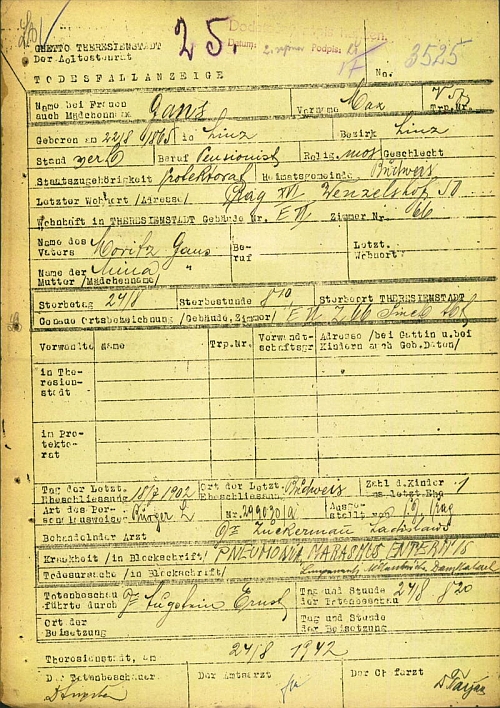 25.
GHETTO THERESIENSTADT
Der Aeltestenrat
3525
TODESFALLANZEIGE
No.
Name bei Frauen
auch Mädchenname
Ganz
Vorname
Max
Trp.Nr.
Geboren am 22/8 1865 in Linz Bezirk Linz
Stand Beruf Pensionist Relig. mos Geschlecht
Staatszugehörigkeit Protektorat Heimatsgemeinde Budweis
Letzter Wohnort /Adresse/ Prag XII Wenzelshof 50
Wohnhaft in THERESIENSTADT Gebäude Nr. E VI Zimmer Nr. 66
Name des
Vaters
Moritz Ganz
Be-
ruf
Letzt.
Wohnort
Name der
Mutter /Mädchenname/
Anna
Sterbetag 24/8 Sterbestunde 8 10 Sterbeort THERESIENSTADT
Genaue Ortsbezeichnung /Gebäude, Zimmer/ E VI Z 66
Verwandte Name Trp.Nr. Verwandt-
schaftsgr
Adresse /bei Gattin u.bei
Kindern auch Geb.Daten/
in The-
resien-
stadt
im Pro-
tekto-
rat
Tag der Letzt.
Eheschliessung
18/7 1902
Ort der Letzt.
Eheschliessung
Budweis
Zahl d.Kinder
aus letzt.Ehe
1
Art des Per-
sonalausweises
Bürger L
Nr. 299030/a
Ausge-
stellt von
Prag
Behandelnder Arzt Zuckermann Ladislaus
Krankheit /in Blockschrift/ PNEUMONIA MARASMUS ENTERITIS
Todesursache /in Blockschrift/
Totenbeschau
führte durch
Augstein Ernst
Tag und Stunde
der Totenbeschau
24/8 8 20
Ort der
Beisetzung
Tag und Stunde
der Beisetzung
Theresienstadt, am 24/8 1942
Der Totenbeschauer Der Amtsarzt Der Chefarzt